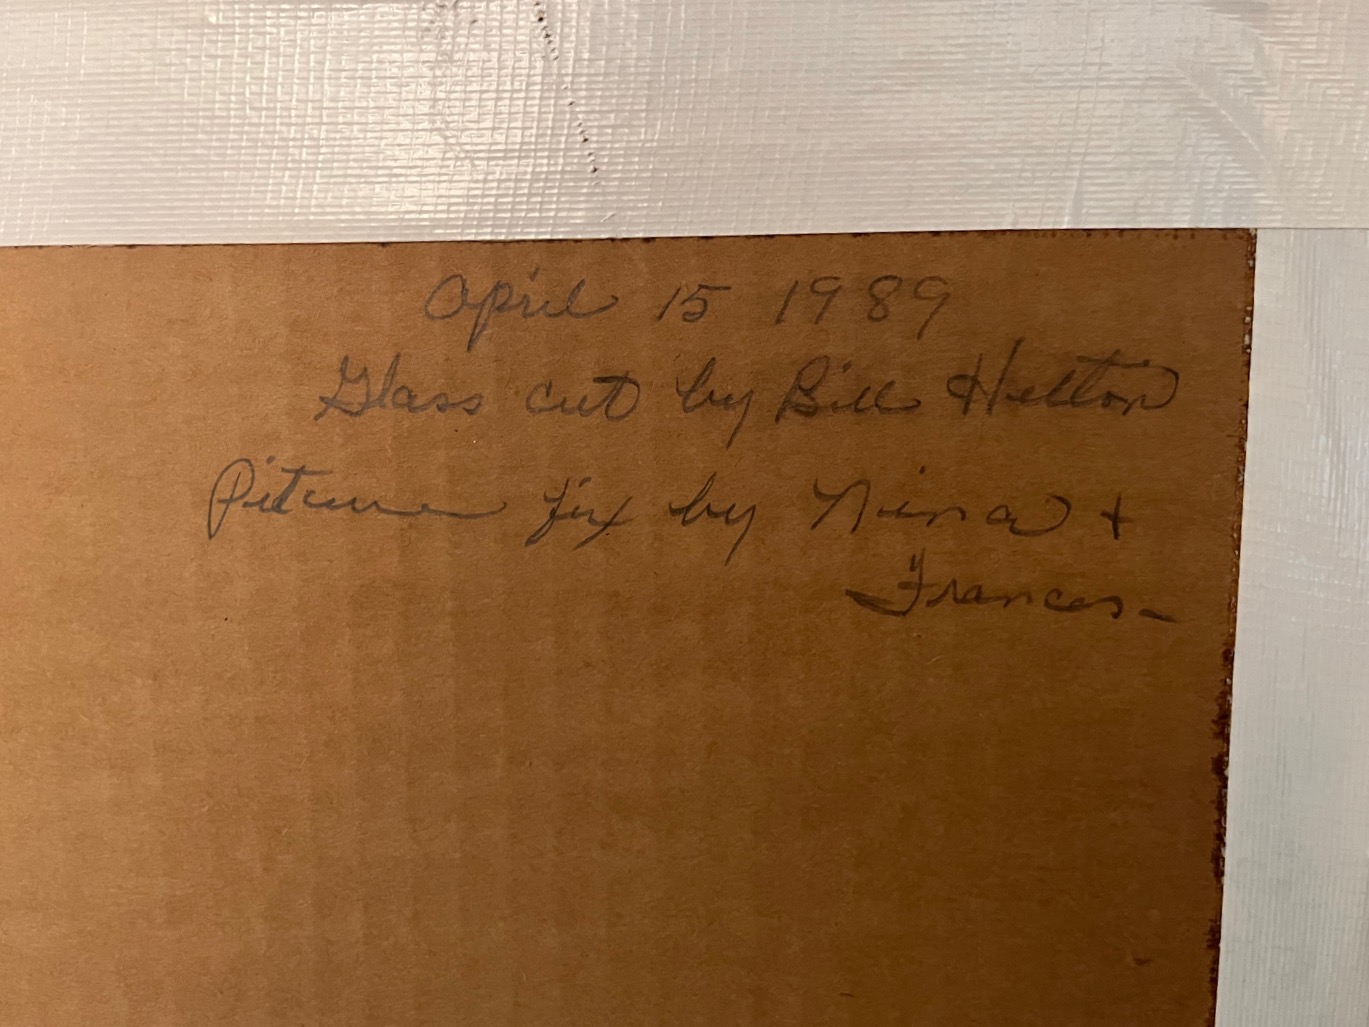 April 15 1989
Glass cut by Bill Helton
Piture fix by Nina +
Frances -